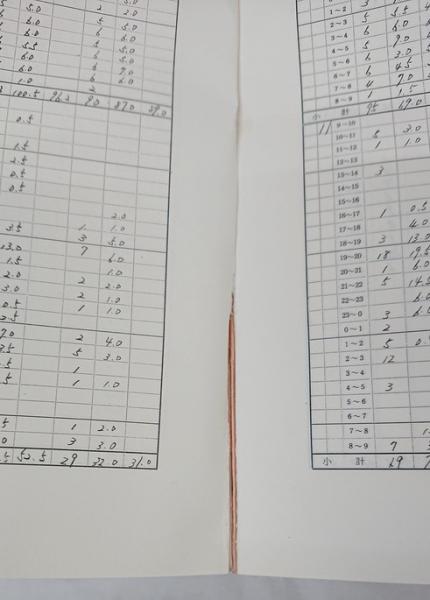 5.0 2 2.0
6.0 5 5.0
6.0 6 6.0
5.5 6 5.0
6.0 6 5.0
6.0 6 9.0
1.0 6 6.0
2
100.5
0.5
1.5
2.5
0.5
0.5
2.0
3.5 1 1.0
13.0 3 5.0
1.5 7 6.0
2.0 1.0
3.0 2 2.0
0.5 2 1.0
2.5 1 1.0
9.0 2 4.0
3.5 5 3.0
1
5 1 1.0
5 1 2.0
0 3 3.0
52.5 29 32.0 31.0
1~2
2~3
3~4 6 6.0
4~5 5 9.0
5~6 6 3.0
6~7 6 4.5
7~8 4 9.0
8~9 1 1.5
小 計
11 9~10
10~11 5 3.0
11~12 1 1.0
12~13
13~14 3
14~15
15~16
16~17 1 0.5
17~18 4.0
18~19 3 13.0
19~20 18 19.5
20~21 1 6.0
21~22 5 14.5
22~23 6.0
23~0 3 6.0
0~1 2
1~2 5
2~3 12
3~4
4~5 3
5~6
6~7
7~8
8~9 7
小 計 69